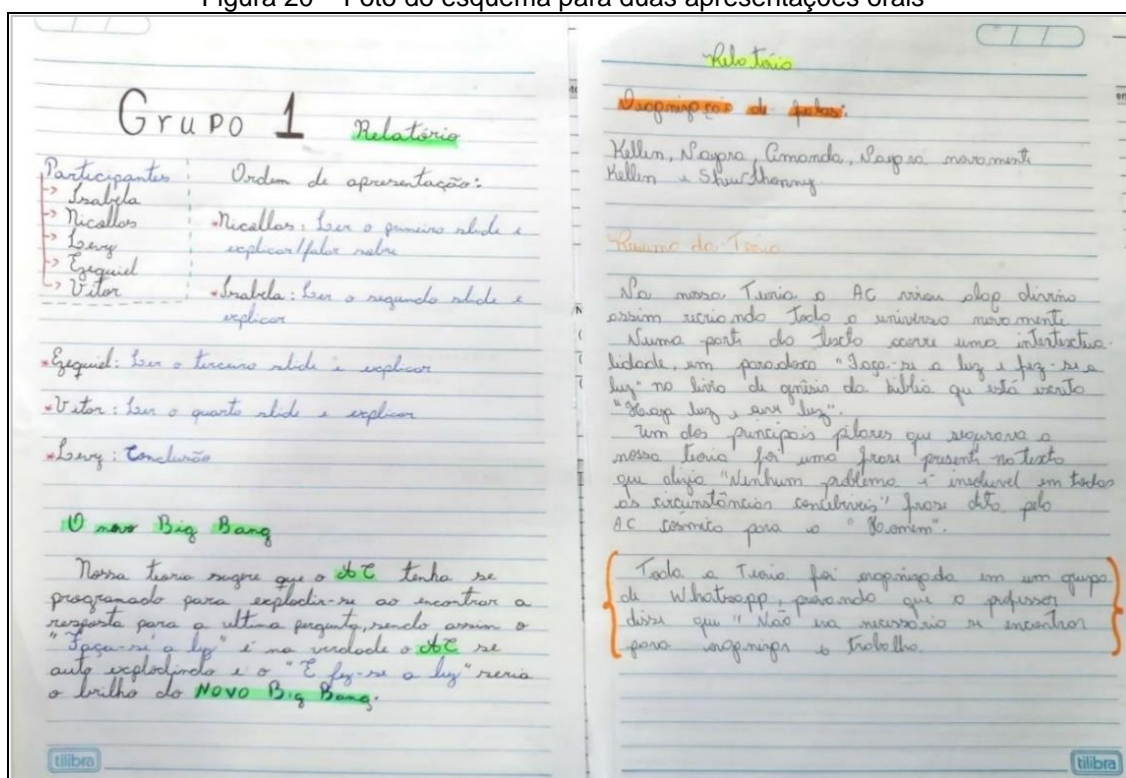 Figura 20 – Foto do esquema para duas apresentações orais
Grupo 1 Relatório
Participantes
-> Isabela
-> Nicollas
-> Levy
-> Ezequiel
-> Vitor
Ordem de apresentação:
*Nicollas: Ler o primeiro slide e
explicar/falar sobre
*Isabela: Ler o segundo slide e
explicar
*Ezequiel: Ler o terceiro slide e explicar
*Vitor: Ler o quarto slide e explicar
*Levy: Conclusão
O novo Big Bang
Nossa teoria sugere que o AC tenha se
programado para explodir-se ao encontrar a
resposta para a ultima pergunta, sendo assim o
"Faça-se a luz" é na verdade o AC se
auto explodindo e o "E fez-se a luz" seria
o brilho do Novo Big Bang.
tilibra
Relatório
Organização de falas:
Kellen, Nayara, Amanda, Nayara novamente
Kellen e
Resumo da Teoria
Na nossa Teoria o AC virou algo divino
assim recriando todo o universo novamente
Numa parte do texto ocorre uma intertextua-
lidade, um paradoxo "Faça-se a luz e fez-se a
luz" no livro de gnisis da bíblia que está escrito
"Haja luz e ouve luz".
Um dos principais pilares que segurava a
nossa teoria foi uma frase presente no texto
que dizia "Nenhum problema é insoluvel em todas
as circunstâncias concebiveis" frase dita pelo
AC cósmico para o "Homem".
Toda a Teoria foi organizada em um grupo
de Whatsapp, provando que o professor
disse que "Não era necessário se encontrar
para organizar o trabalho.
tilibra